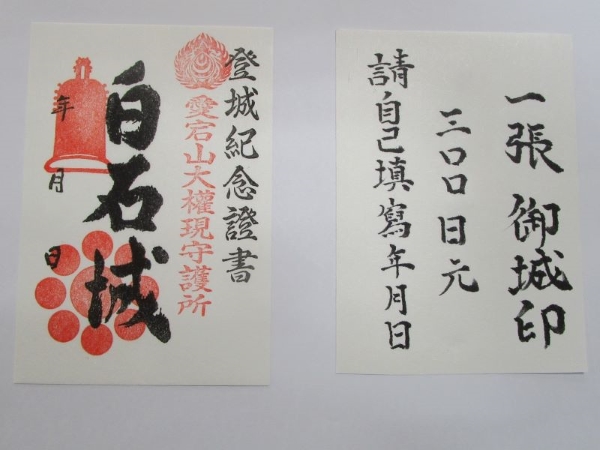 登城紀念證書
愛宕山大權現守護所
白石城
年　月　日
一張 御城印
三〇〇日元
請自己填寫年月日